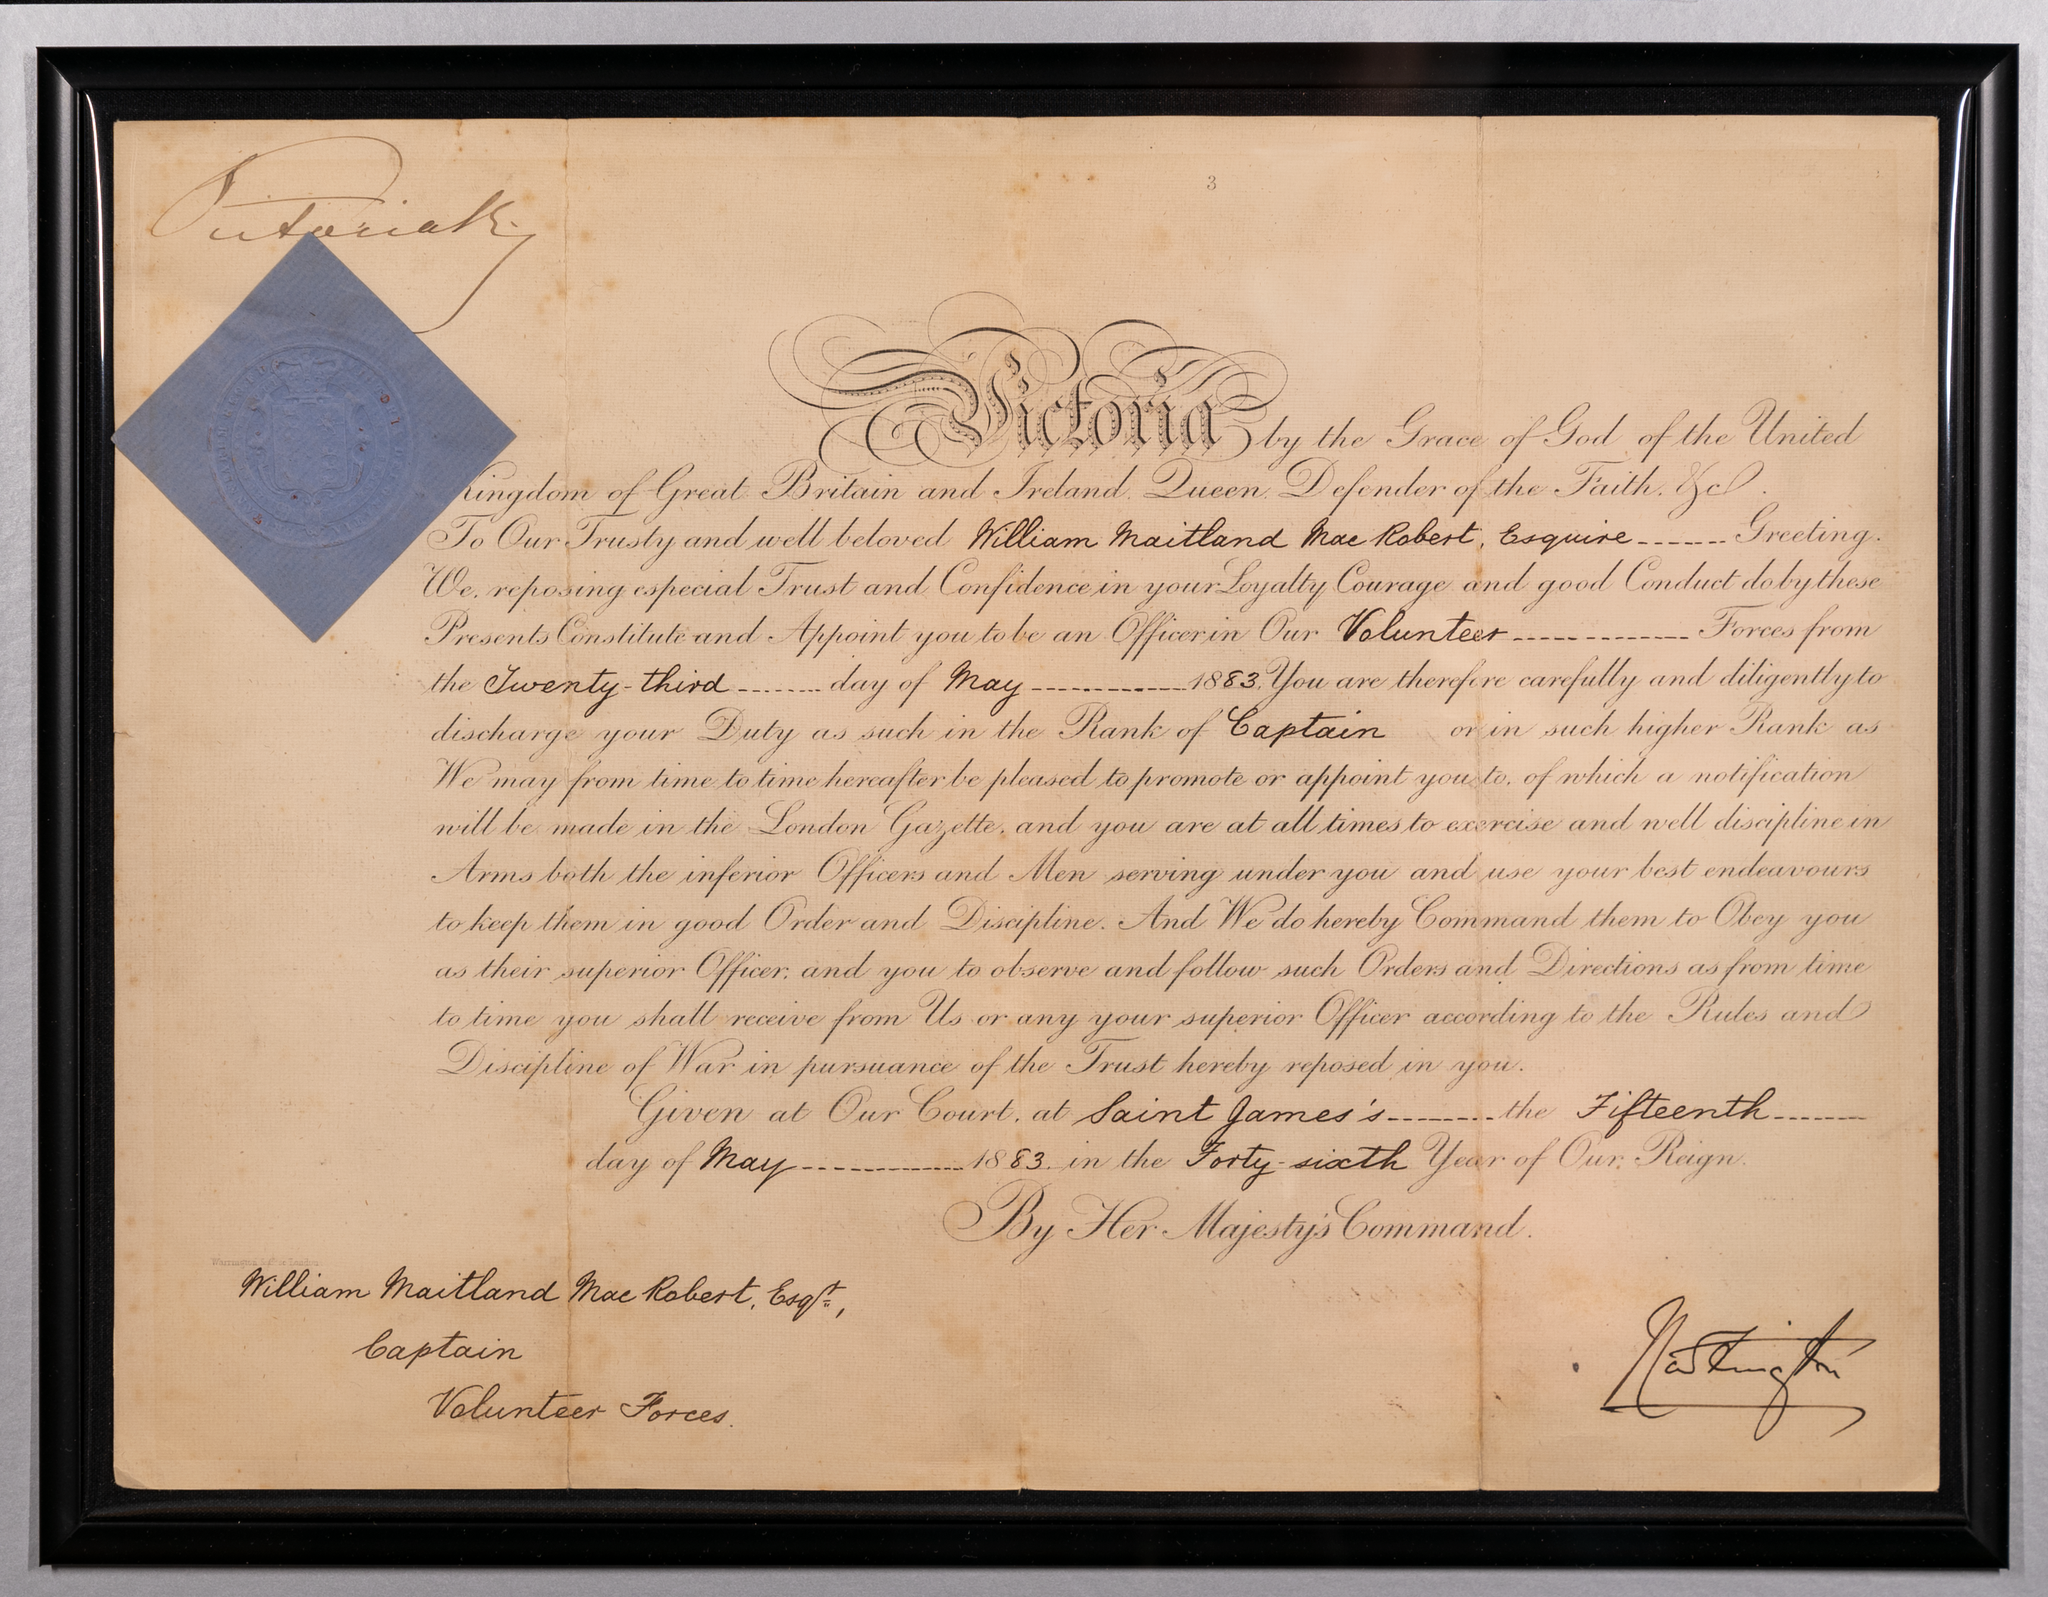 Victoria R
3
Victoria by the Grace of God of the United
Kingdom of Great Britain and Ireland. Queen. Defender of the Faith. &c.
To Our Trusty and well beloved William Maitland Mac Robert, Esquire Greeting.
We, reposing especial Trust and Confidence in your Loyalty Courage and good Conduct do by these
Presents Constitute and Appoint you to be an Officer in Our Volunteer Forces from
the Twenty-third day of May 1883. You are therefore carefully and diligently to
discharge your Duty as such in the Rank of Captain or in such higher Rank as
We may from time to time hereafter be pleased to promote or appoint you to, of which a notification
will be made in the London Gazette, and you are at all times to exercise and well discipline in
Arms both the inferior Officers and Men serving under you and use your best endeavours
to keep them in good Order and Discipline. And We do hereby Command them to Obey you
as their superior Officer, and you to observe and follow such Orders and Directions as from time
to time you shall receive from Us or any your superior Officer according to the Rules and
Discipline of War in pursuance of the Trust hereby reposed in you.
Given at Our Court, at Saint James's the Fifteenth
day of May 1883. in the Forty-sixth Year of Our Reign.
By Her Majesty's Command.
William Maitland Mac Robert, Esqr.,
Captain
Volunteer Forces.
Hartington